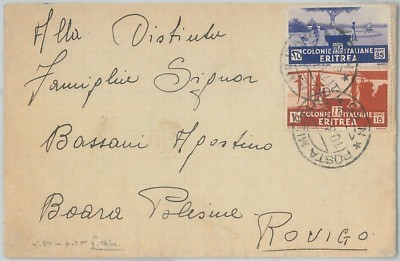 Alla Distinta
Famiglia Signor
Bassani Agostino
Boara Polesine
Rovigo
COLONIE ITALIANE
35
ERITREA
COLONIE ITALIANE
15
ERITREA
15
POSTA MI